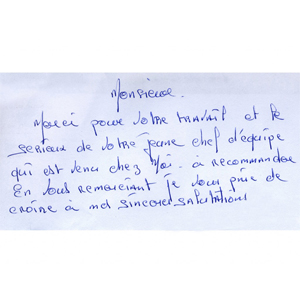 Monsieur.
Merci pour votre travail et le
serieux de votre jeune chef d'équipe
qui est venu chez Moi. à recommander
En vous remerciant je vous prie de
croire à mes sincères salutations